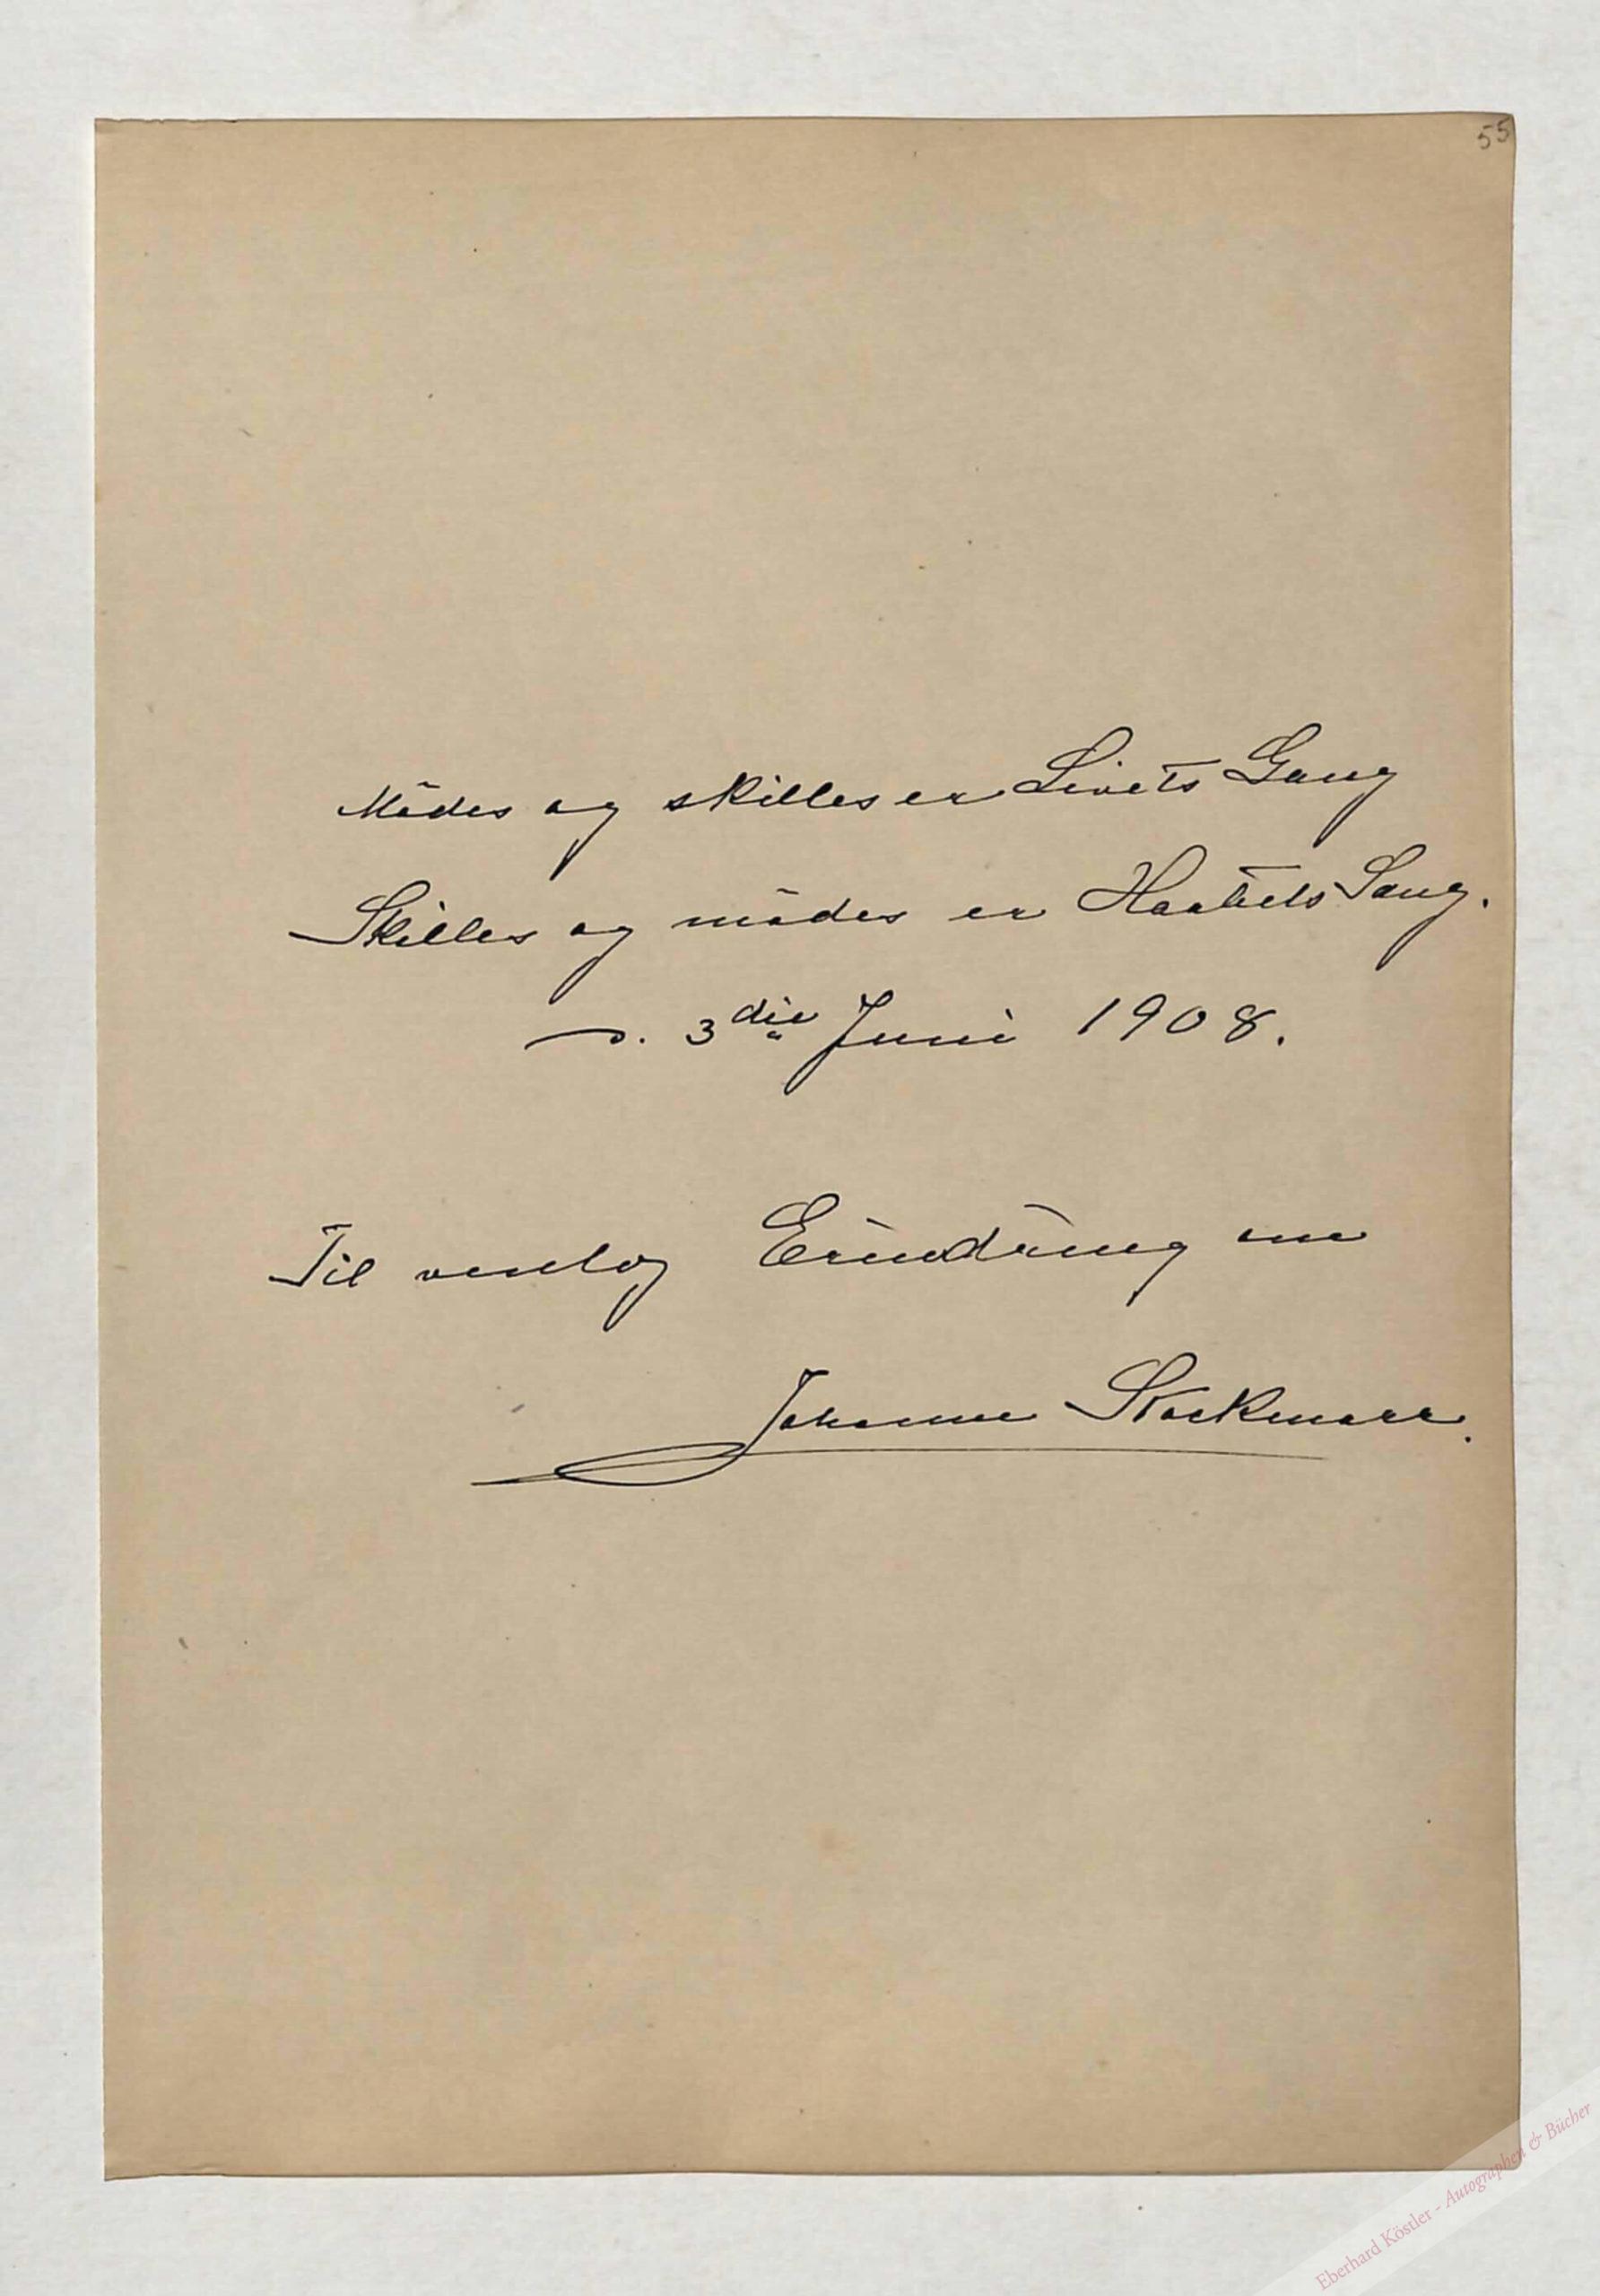 55
Mödes og skilles er Livets Gang
Skilles og mödes er Haabets Sang.
D. 3die Juni 1908.
Til venlig Erindring om
Johanne Stockmarr.
Eberhard Köstler - Autographen & Bücher